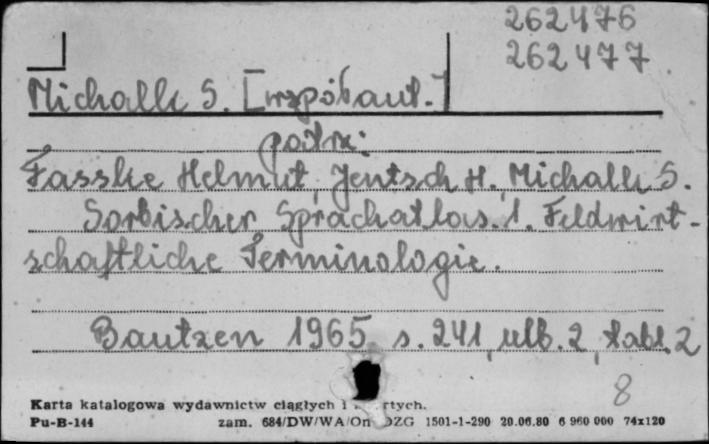 262476
262477
Michalk S. [współaut.]
patrz:
Fasske Helmut, Jentsch H., Michalk S.
Sorbischer Sprachatlas. 1. Feldwirt-
schaftliche Terminologie.
Bautzen 1965 s. 241, ulb. 2, tabl. 2
8
Karta katalogowa wydawnictw ciągłych i
Pu-B-144 zam. 684/DW/WA/On OZG 1501-1-290 20.06.80 6 960 000 74x120